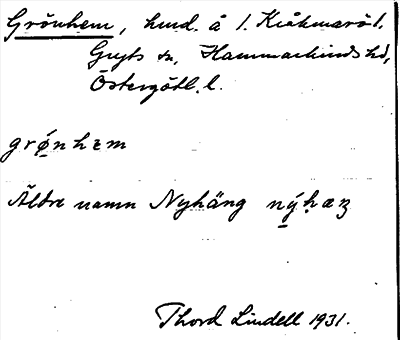 Grönhem, hmd. å l. Kråkmarö l.
Gryts sn, Hammarkinds hd,
Östergötl. l.
grǿnhem
Äldre namn Nyhäng nýhæŋ
Thord Lindell 1931.